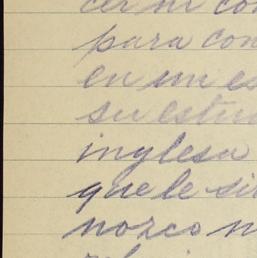 cer mi con
para con
en un es
su estu
inglesa
que le si
nozco n